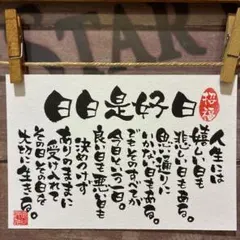 STAR
日日是好日
招福
人生には
嬉しい日も
悲しい日もある。
思い通りに
いかない日もある。
でもそのすべてが
今日という一日。
良い日も悪い日も
決めつけず
ありのままに
受け入れて
その日その日を
大切に生きる。